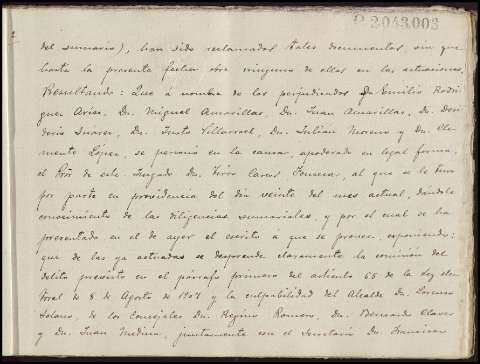 P2043,003
del sumario), han sido reclamados tales documentos sin que
hasta la presente fecha obre ninguno de ellos en las actuaciones.
Resultando: Que á nombre de los perjudicados Dn Emilio Rodri
guez Arias, Dn. Miguel Amarillas, Dn. Juan Amarillas, Dn. Desi
derio Suarez, Dn. Justo Villarroel, Dn. Julian Moreno y Dn. Cle
mente López, se personó en la causa, apoderado en legal forma,
el Pror de este Juzgado Dn. Casas Fonseca, al que se le tuvo
por parte en providencia del día veinte del mes actual, dándole
conocimiento de las diligencias sumariales, y por el cual se ha
presentado en el de ayer el escrito á que se provee, exponiendo:
que de las ya actuadas se desprende claramente la comisión del
delito previsto en el párrafo primero del artículo 65 de la ley elec
toral de 8 de Agosto de 1907 y la culpabilidad del Alcalde Dn. Lorenzo
Solano, de los Concejales Dn. Regino Romero, Dn. Bernardo Claver
y Dn. Juan Medina, juntamente con el Secretario Dn. Francisco